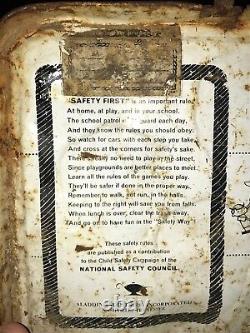 "SAFETY FIRST" is an important rule,
At home, at play, and in your school.
The school patrol will guard each day,
And they know the rules you should obey.
So watch for cars with each step you take
And cross at the corners for safety's sake.
There's really no need to play in the street,
Since playgrounds are better places to meet.
Learn all the rules of the games you play.
They'll be safer if done in the proper way.
Remember to walk, not run, in the halls.
Keeping to the right will save you from falls.
When lunch is over, clear the trash away.
And go on to have fun in the "Safety Way".
These safety rules
are published as a contribution
to the Child Safety Campaign of the
NATIONAL SAFETY COUNCIL.
ALADDIN INCORPORATED